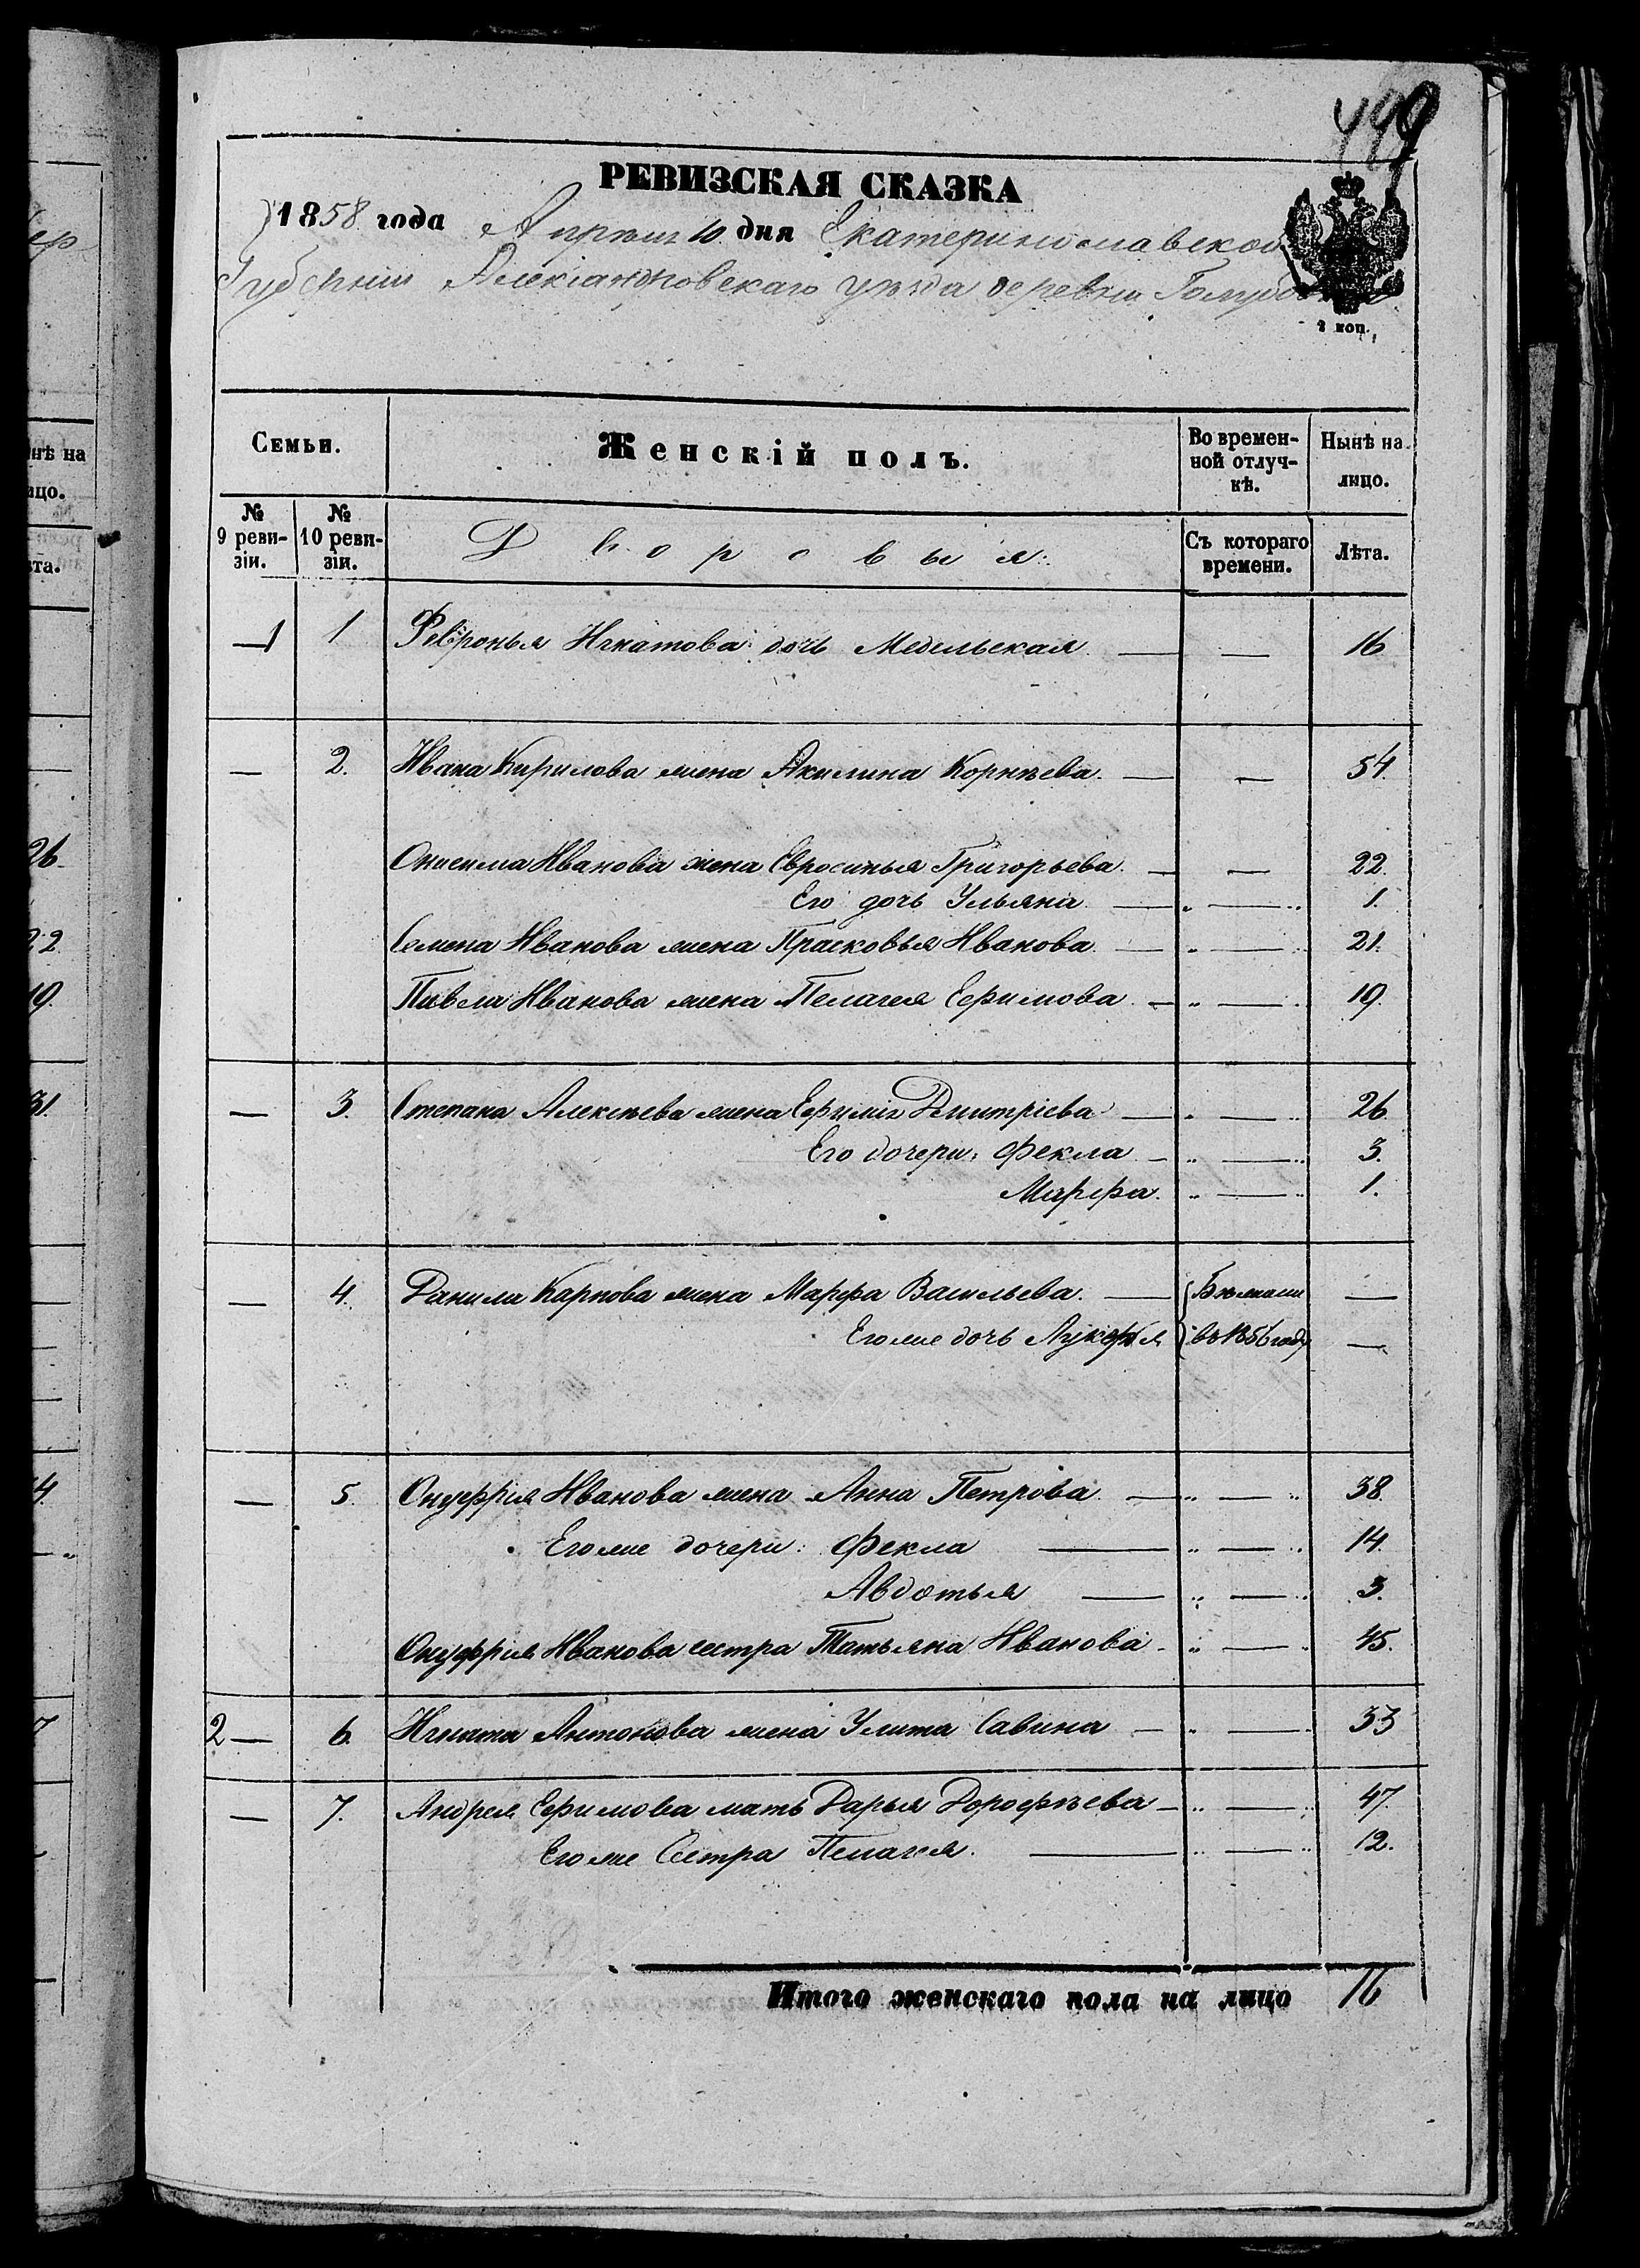 449
РЕВИЗСКАЯ СКАЗКА
1858 года Апрѣля 10 дня Екатеринославской
Губерніи Александровскаго уѣзда деревни
2 коп.
Семьи. Женскій полъ. Во времен- Нынѣ на
ной отлуч- лицо.
кѣ.
№ № Дворовыя. Съ котораго Лѣта.
9 реви- 10 реви- времени.
зіи. зіи.
1 1 Февронья Игнатова дочь — — 16
— 2. Ивана Кирилова жена Акилина Корнѣева. — — 54
Онисима Иванова жена Евросинья Григорьева. — — 22.
Его дочь Ульяна — „ — „ 1.
Семена Иванова жена Прасковья Иванова — „ — „ 21.
Павла Иванова жена Пелагея Ефимова — „ — „ 19.
— 3. Степана Алексѣева жена Ефимія Дмитріева — „ — „ 26
Его дочери: Фекла — „ — „ 3.
Марфа. „ — „ 1.
— 4. Данилы Карпова жена Марфа Васильева. — Бѣжали —
Его же дочь Лукерья въ 1856 году —
— 5. Онуффрія Иванова жена Анна Петрова — „ — „ 38.
Его же дочери: Фекла — „ — „ 14.
Авдотья — „ — „ 3.
Онуфрія Иванова сестра Татьяна Иванова — „ — „ 45.
2 — 6. Игната Антонова жена Улита Савина — „ — „ 33
— 7. Андрея Ефимова мать Дарья Дорофѣева — „ — „ 47.
Его же Сестра Пелагея. — „ — „ 12.
Итого женскаго пола на лицо 16
ер
нѣ на
ицо.
ѣта.
26
22
19.
31.
4.
7